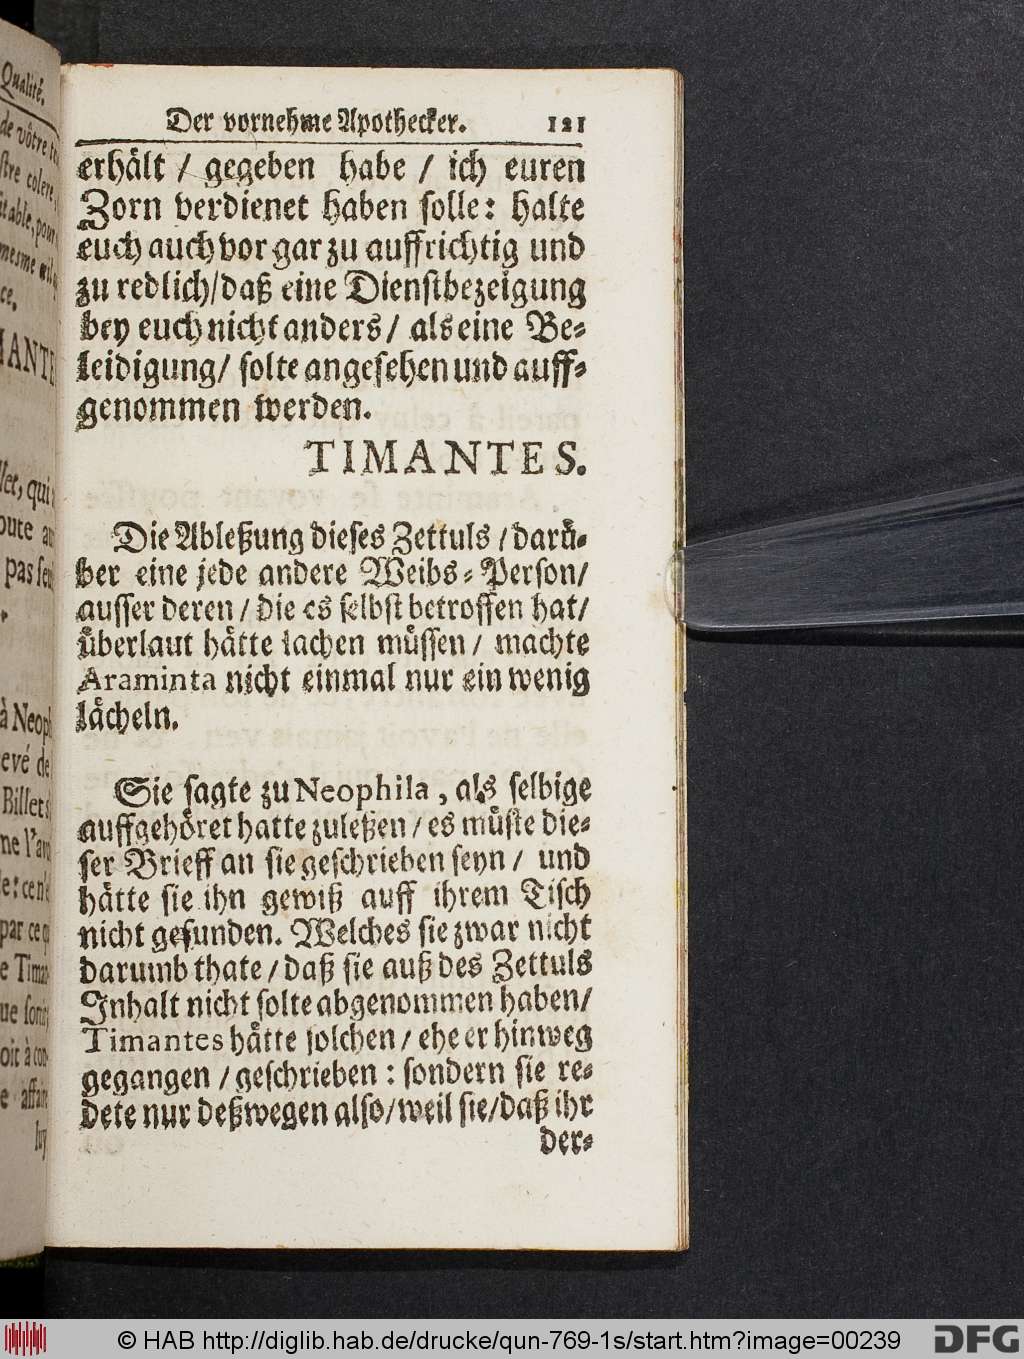 Qualité.
de vôtre
stre colere,
itable, pour
mesme
ce.
Der vornehme Apothecker. 121
erhält / gegeben habe / ich euren
Zorn verdienet haben solle: halte
euch auch vor gar zu auffrichtig und
zu redlich/daß eine Dienstbezeigung
bey euch nicht anders/ als eine Be-
leidigung/ solte angesehen und auff-
genommen werden.
TIMANTES.
Die Ableßung dieses Zettuls / darü-
ber eine jede andere Weibs-Person/
ausser deren / die es selbst betroffen hat/
überlaut hätte lachen müssen/ machte
Araminta nicht einmal nur ein wenig
lächeln.
Sie sagte zu Neophila, als selbige
auffgehöret hatte zuleßen / es müste die-
ser Brieff an sie geschrieben seyn / und
hätte sie ihn gewiß auff ihrem Tisch
nicht gefunden. Welches sie zwar nicht
darumb thate / daß sie auß des Zettuls
Inhalt nicht solte abgenommen haben/
Timantes hätte solchen / ehe er hinweg
gegangen / geschrieben : sondern sie re-
dete nur deßwegen also/weil sie/daß ihr
der-
© HAB http://diglib.hab.de/drucke/qun-769-1s/start.htm?image=00239
DFG